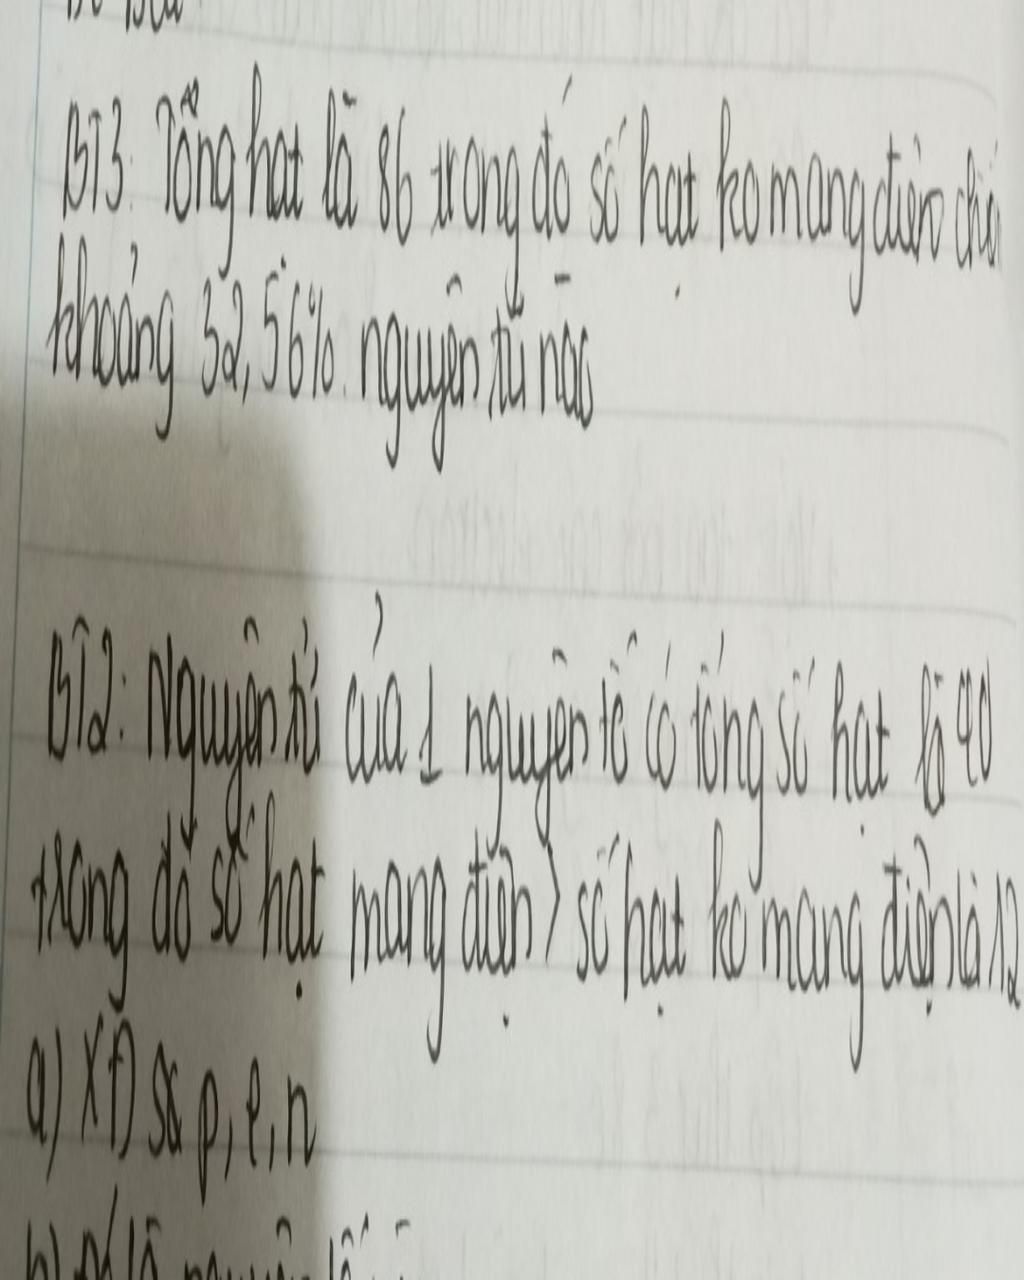 BT3. Tổng hạt là 86 trong đó số hạt ko mang điện
khoảng 32,56%. nguyên tử nào
BT2: Nguyên tử của 1 nguyên tố có tổng số hạt là 40
trong đó số hạt mang điện > số hạt ko mang điện là 12
a) XĐ số p, e, n